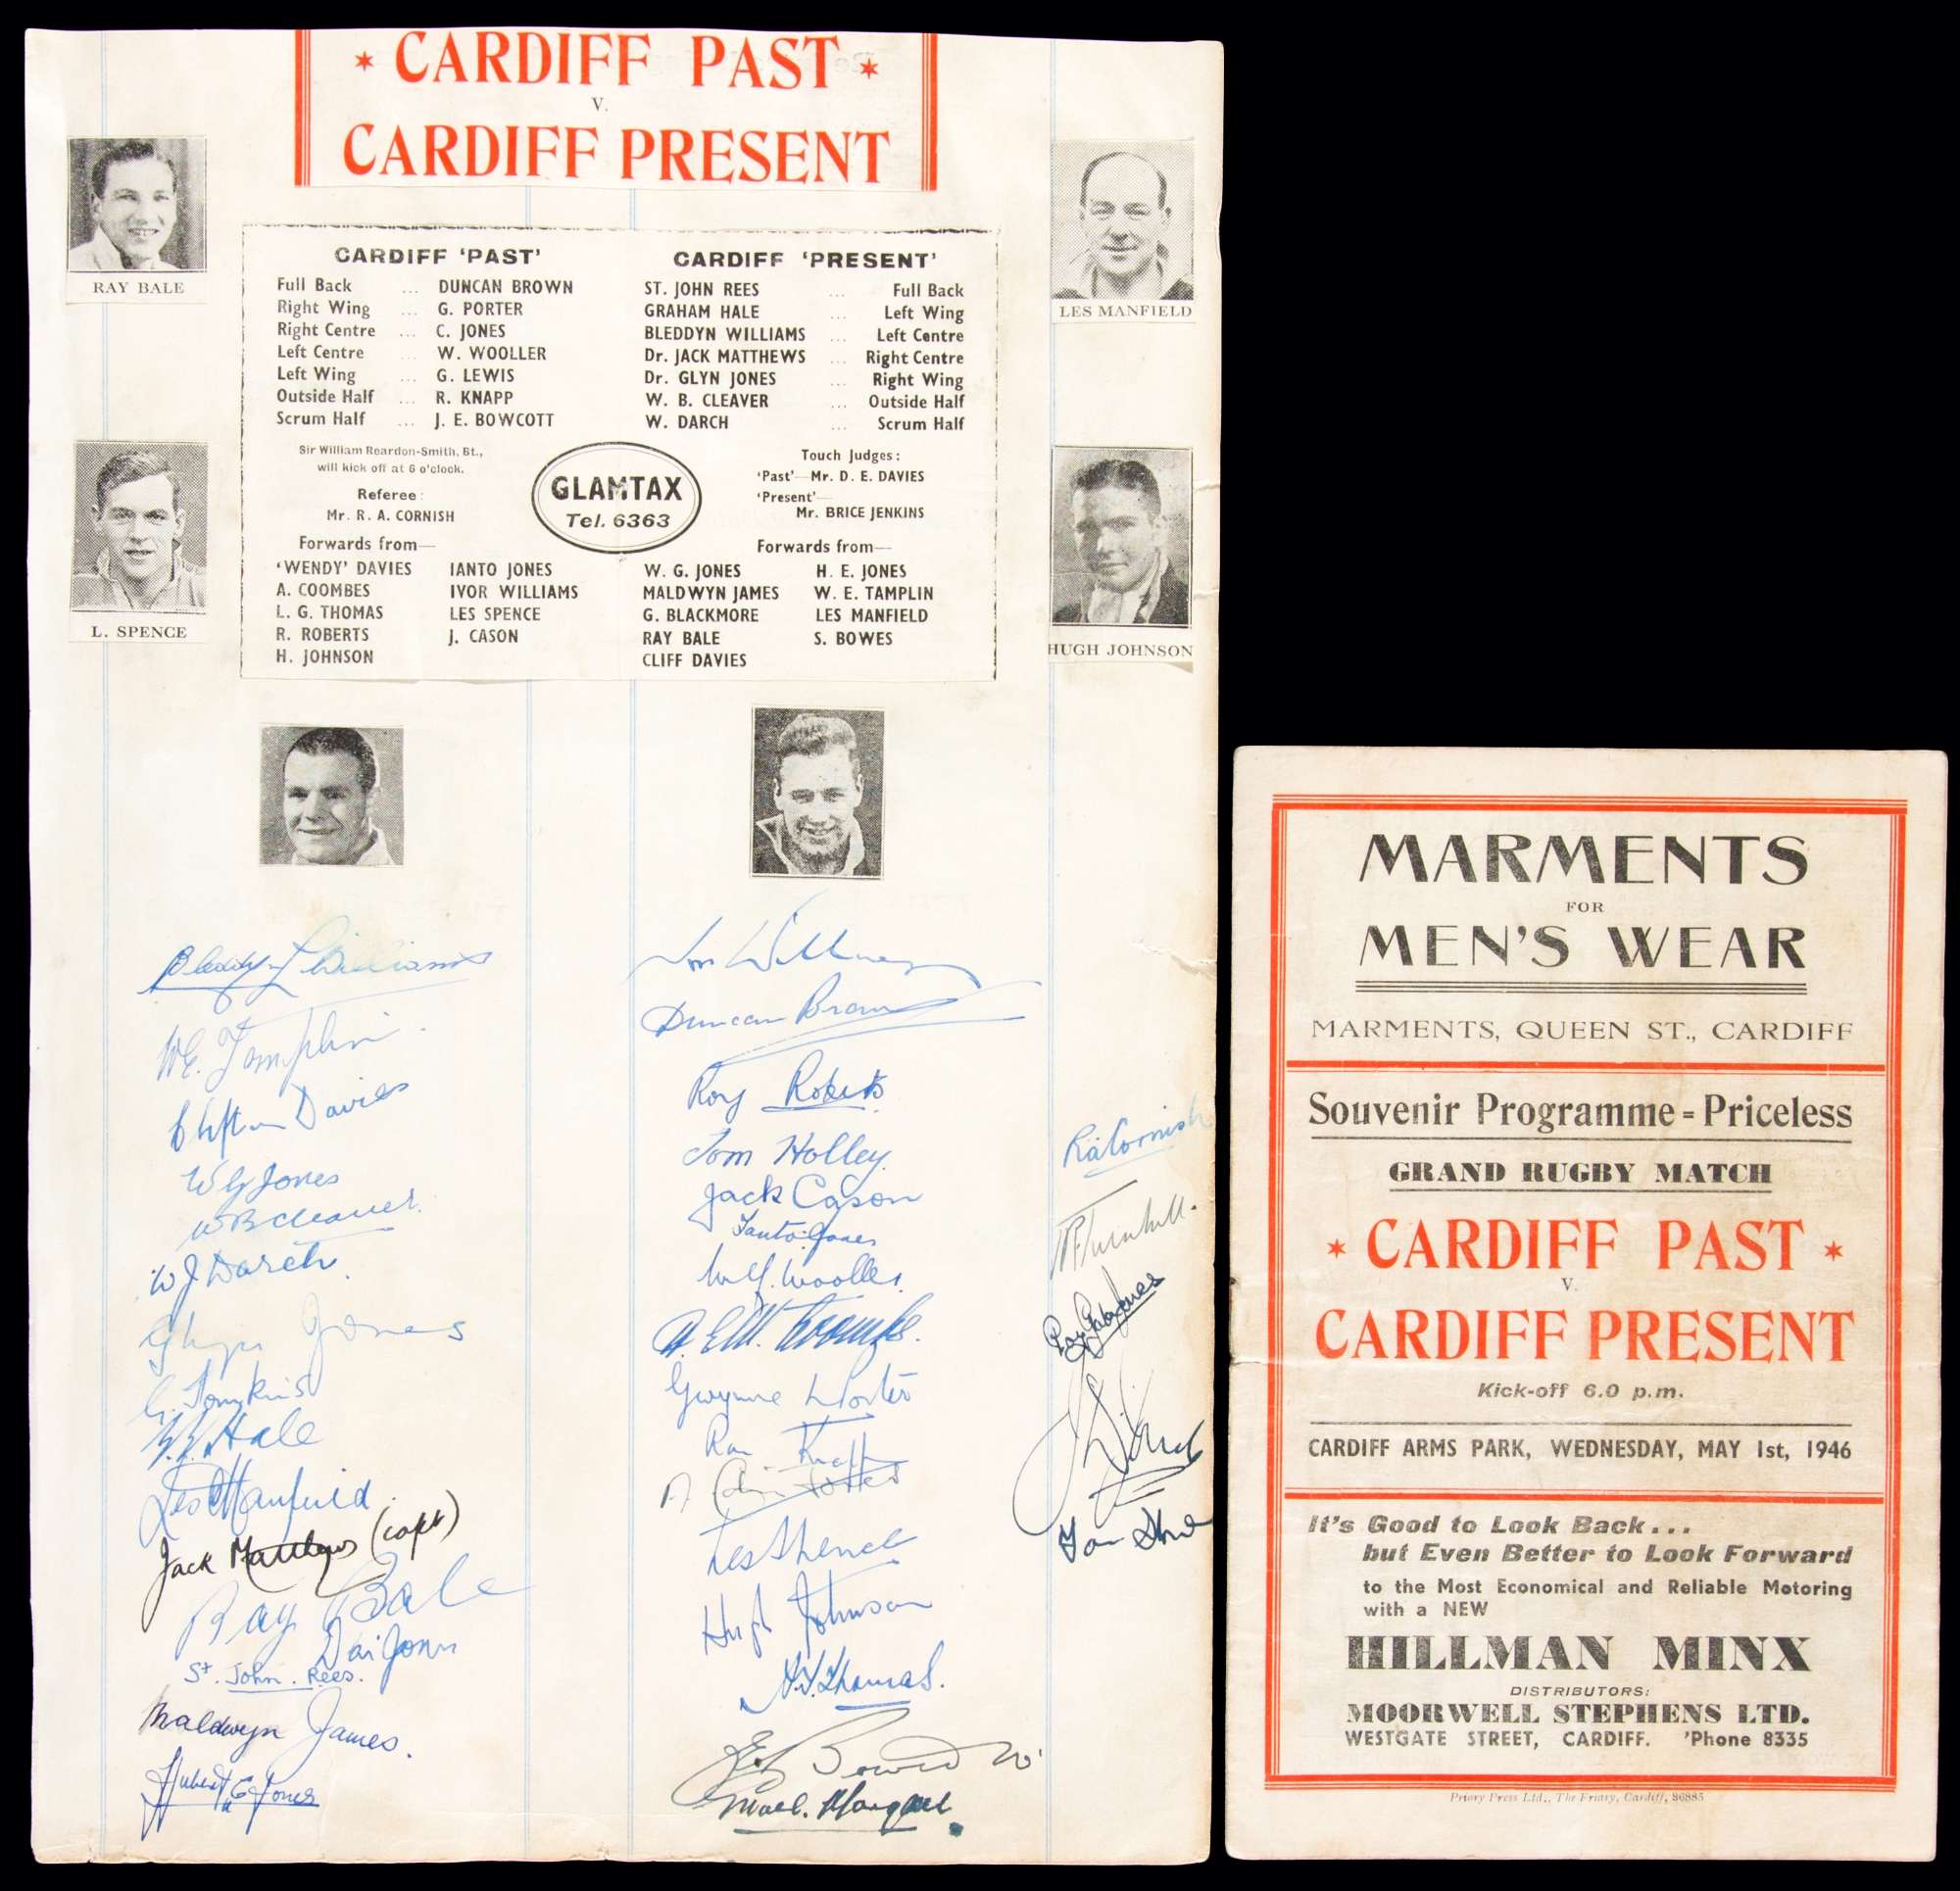 * CARDIFF PAST *
V.
CARDIFF PRESENT
RAY BALE
LES MANFIELD
L. SPENCE
HUGH JOHNSON
CARDIFF 'PAST'
Full Back ... DUNCAN BROWN
Right Wing ... G. PORTER
Right Centre ... C. JONES
Left Centre ... W. WOOLLER
Left Wing ... G. LEWIS
Outside Half ... R. KNAPP
Scrum Half ... J. E. BOWCOTT
CARDIFF 'PRESENT'
ST. JOHN REES ... Full Back
GRAHAM HALE ... Left Wing
BLEDDYN WILLIAMS ... Left Centre
Dr. JACK MATTHEWS ... Right Centre
Dr. GLYN JONES ... Right Wing
W. B. CLEAVER ... Outside Half
W. DARCH ... Scrum Half
Sir William Reardon-Smith, Bt.,
will kick off at 6 o'clock.
Referee:
Mr. R. A. CORNISH
GLAMTAX
Tel. 6363
Touch Judges:
'Past'—Mr. D. E. DAVIES
'Present'—
Mr. BRICE JENKINS
Forwards from—
'WENDY' DAVIES IANTO JONES
A. COOMBES IVOR WILLIAMS
L. G. THOMAS LES SPENCE
R. ROBERTS J. CASON
H. JOHNSON
Forwards from—
W. G. JONES H. E. JONES
MALDWYN JAMES W. E. TAMPLIN
G. BLACKMORE LES MANFIELD
RAY BALE S. BOWES
CLIFF DAVIES
Bleddyn Williams
W.E. Tamplin
Clifton Davies
W G Jones
W B Cleaver.
W J Darch.
Glyn Jones
G. Tomkins
Hale
Les Manfield.
Jack Matthews (capt)
Ray Bale
Dai Jones
St. John. Rees.
Maldwyn James.
Hubert E Jones
Duncan Brown
Roy Roberts
Tom Holley.
Jack Cason
Ianto Jones
Wooller.
Coombes.
Gwynne Porter
Ron Knapp
Les Spence
Hugh Johnson
Thomas.
Bowcott
R A Cornish
Turnbull.
MARMENTS
FOR
MEN'S WEAR
MARMENTS, QUEEN ST., CARDIFF
Souvenir Programme = Priceless
GRAND RUGBY MATCH
* CARDIFF PAST *
V.
CARDIFF PRESENT
Kick-off 6.0 p.m.
CARDIFF ARMS PARK, WEDNESDAY, MAY 1st, 1946
It's Good to Look Back...
but Even Better to Look Forward
to the Most Economical and Reliable Motoring
with a NEW
HILLMAN MINX
DISTRIBUTORS:
MOORWELL STEPHENS LTD.
WESTGATE STREET, CARDIFF. 'Phone 8335
Priory Press Ltd., The Friary, Cardiff, 86885